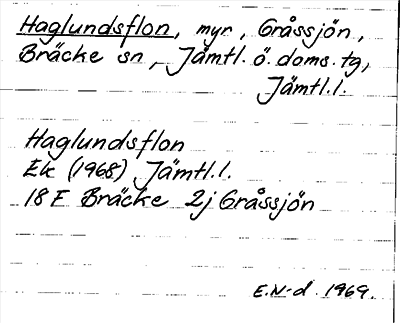 Haglundsflon, myr, Gråssjön,
Bräcke sn, Jämtl. ö. doms. tg,
Jämtl.l.
Haglundsflon
Ek (1968) Jämtl.l.
18 F Bräcke 2j Gråssjön
E.N-d. 1969.